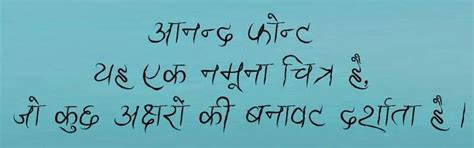 आनन्द फोन्ट
यह एक नमूना चित्र है,
जो कुछ अक्षरों की बनावट दर्शाता है ।